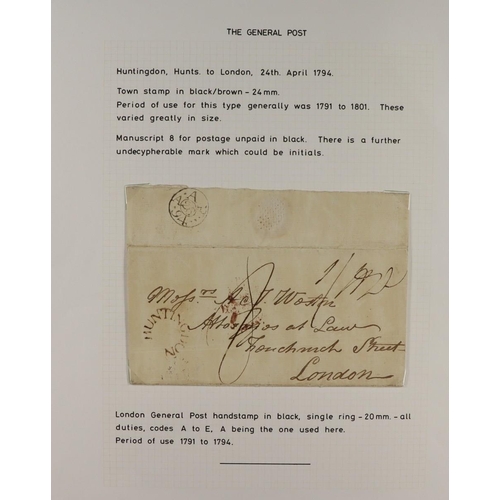 THE GENERAL POST
Huntingdon, Hunts. to London, 24th. April 1794.
Town stamp in black/brown - 24mm.
Period of use for this type generally was 1791 to 1801. These
varied greatly in size.
Manuscript 8 for postage unpaid in black. There is a further
undecypherable mark which could be initials.
Mess.rs & J. Weston
Attornies at Law
Fenchurch Street
London
HUNTI
London General Post handstamp in black, single ring - 20mm. - all
duties, codes A to E, A being the one used here.
Period of use 1791 to 1794.